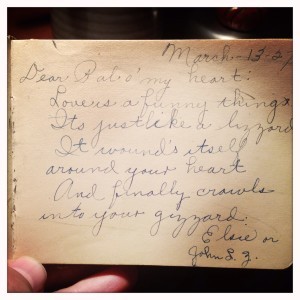 March-13-27
Dear Pal o' my heart:
Love is a funny thing
Its just like a lizzard
It wound's itself
around your heart
And finally crawls
into your gizzard.
Elsie or
John L. Z.